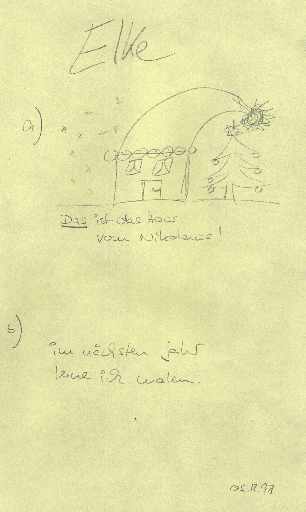 Elke
a)
Das ist das Haus
vom Nikolaus!
b)
im nächsten Jahr
lerne ich malen.